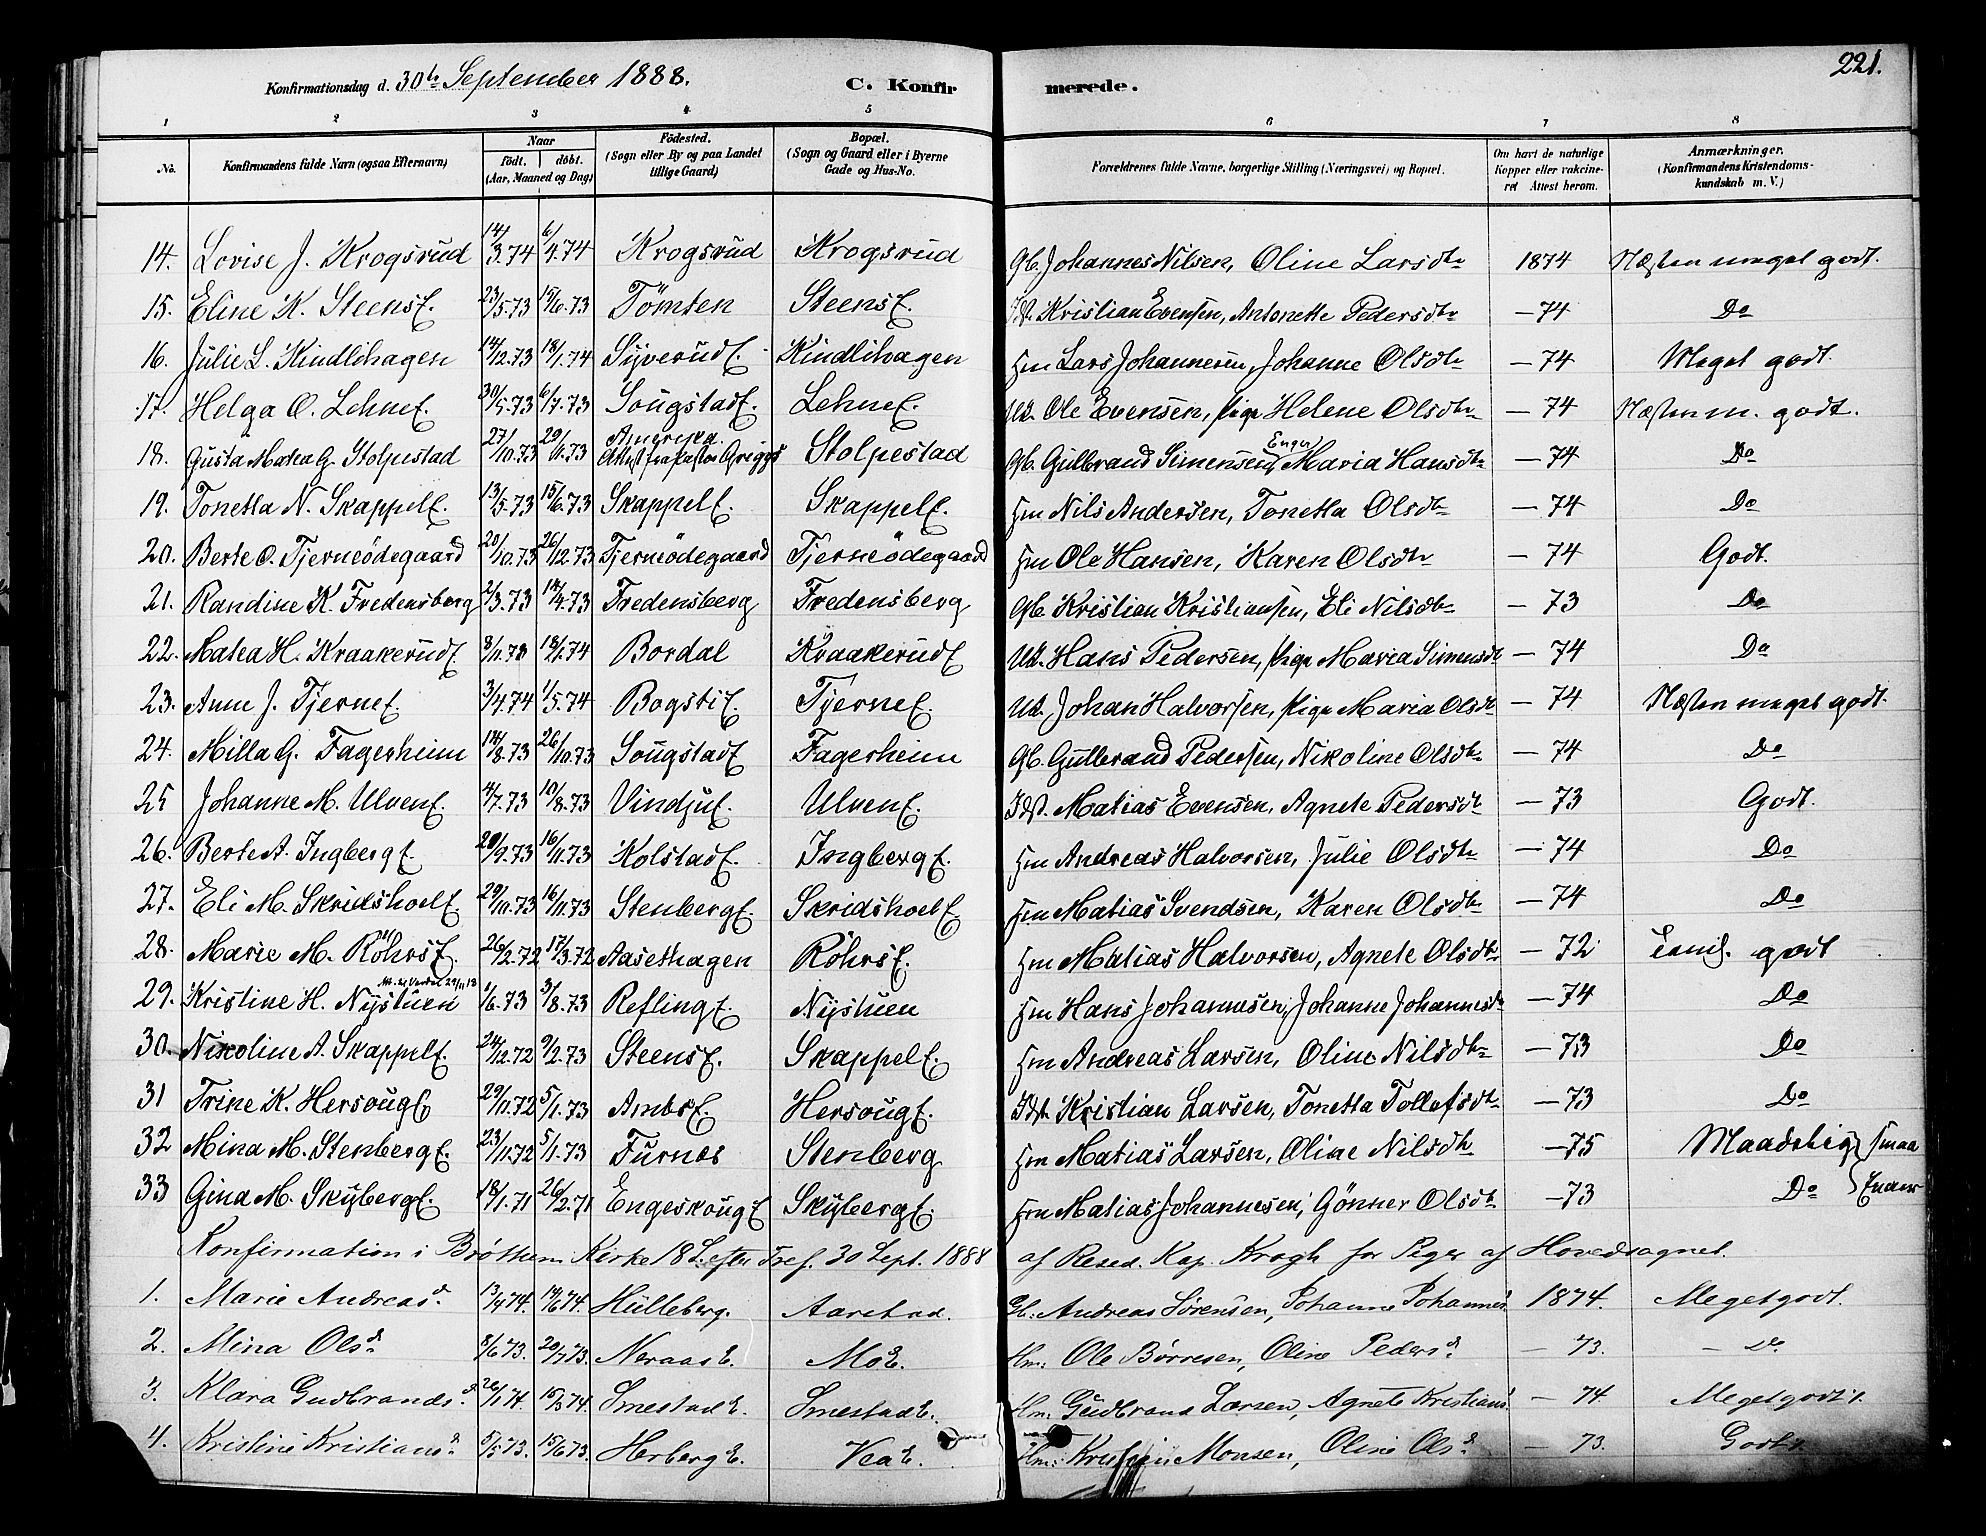 221.
Konfirmationsdag d. 30te September 1888. C. Konfirmerede.
1 2 3 4 5 6 7 8
No. Konfirmandens fulde Navn (ogsaa Efternavn) Naar født. døbt. (Aar, Maaned og Dag) Födested. (Sogn eller By og paa Landet tillige Gaard) Bopæl. (Sogn og Gaard eller i Byerne Gade og Hus-No. Forældrenes fulde Navne, borgerlige Stilling (Næringsvei) og Bopæl. Om havt de naturlige Kopper eller vakcineret Attest herom. Anmærkninger. (Konfirmandens Kristendomskundskab m. V.)
14. Lovise J. Krogsrud 14/3.74 6/4.74 Krogsrud Krogsrud Gb. Johannes Nilsen, Oline Larsdtr 1874 Næsten meget godt.
15. Eline K. Steens E. 23/5.73 15/6.73 Tömten Steens E. Idst. Kristian Evensen, Antonette Pedersdtr — 74 Do
16. Julie L. Kindlihagen 14/12.73 18/1.74 Syverud E. Kindlihagen Hm Lars Johannesen, Johanne Olsdtr — 74 Meget godt.
17. Helga O. Lehne E. 30/5.73 6/7.73 Sougstad E. Lehne E. Uk. Ole Evensen, Pige Helene Olsdtr — 74 Næsten m. godt.
18. Gusta Matea G. Stolpestad 27/10.73 29/11.73 Amerika. Attest fra Pastor Griggs Stolpestad Gb. Gulbrand Simensen Enger, Maria Hansdtr — 74 Do
19. Tonetta N. Skappel E. 13/5.73 15/6.73 Skappel E. Skappel E. Hm Nils Andersen, Tonetta Olsdtr — 74 Do
20. Berte O. Tjerneödegaard 20/10.73 26/12.73 Tjerneödegaard Tjerneödegaard Hm Ole Hansen, Karen Olsdtr — 74 Godt.
21. Randine K. Fredensberg 2/3.73 14/4.73 Fredensberg Fredensberg Gb. Kristian Kristiansen, Eli Nilsdtr — 73 Do
22. Matea H. Kraakerud E. 8/11.73 18/1.74 Bordal Kraakerud E. Uk. Hans Pedersen, Pige Maria Simensdtr — 74 Do
23. Anne J. Tjerne E. 3/4.74 1/5.74 Bogsti E. Tjerne E. Uk. Johan Halvorsen, Pige Maria Olsdtr — 74 Næsten meget godt.
24. Milla G. Fagerheim 14/8.73 26/10.73 Sougstad E. Fagerheim Gb. Gulbrand Pedersen, Nikoline Olsdtr — 74 Do
25 Johanne M. Ulven E. 4/7.73 10/8.73 Vindjul E. Ulven E. Idst. Matias Evensen, Agnete Pedersdtr — 73 Godt.
26. Berte A. Ingberg E. 20/9.73 16/11.73 Kolstad E. Ingberg E. Hm Andreas Halvorsen, Julie Olsdtr — 74 Do
27. Eli M. Skridshoel E. 29/10.73 16/11.73 Stenberg E. Skridshoel E. Hm Matias Svendsen, Karen Olsdtr — 74 Do
28. Marie M. Röhrs E. 26/2.72 17/3.72 Aasethagen Röhrs E. Hm Matias Halvorsen, Agnete Olsdtr — 72 Temlg. godt
29. Kristine H. Nystuen 1/6.73 3/8.73 Refling E. Nystuen Hm Hans Johannesen, Johanne Johannesdtr — 74 Do
30. Nikoline A. Skappel E. 24/12.72 9/2.73 Steens E. Skappel E. Hm Andreas Larsen, Oline Nilsdtr — 73 Do
31 Trine K. Hersoug E. 29/11.72 5/1.73 Ambs E. Hersoug E. Idst. Kristian Larsen, Tonetta Tollefsdtr — 73 Do
32 Mina M. Stenberg E. 23/11.72 5/1.73 Furnes Stenberg Hm Matias Larsen, Oline Nilsdtr — 75 Maadelig smaa
33 Gina M. Skyberg E. 18/1.71 26/2.71 Engeskoug E. Skyberg E. Hm Matias Johannesen, Gönner Olsdtr — 73 Do Evner
Konfirmation i Brøttum Kirke 18 S. efter Tref. 30 Sept. 1888 af Resid. Kap. Krogh for Piger af Hovedsognet.
1. Marie Andreasd. 13/4 74. 14/6 74. Hulleberg. Aarstad. Gb. Andreas Sörensen, Johanne Johannes. 1874. Meget godt.
2. Mina Olsd. 8/6 73. 20/7 73. Neraas E. Mo E. Hm: Ole Börresen, Oline Pedersd. — 73. — Do
3. Klara Gudbrandsd. 26/1 74. 15/3 74. Smestad E. Smestad E. Hm. Gudbrand Larsen, Agnete Kristians. — 74. Meget godt.
4. Kristine Kristiansd. 5/5 73. 15/6 73. Herberg E. Vea E. Hm: Kristian Monsen, Oline Olsd. — 73. Godt.